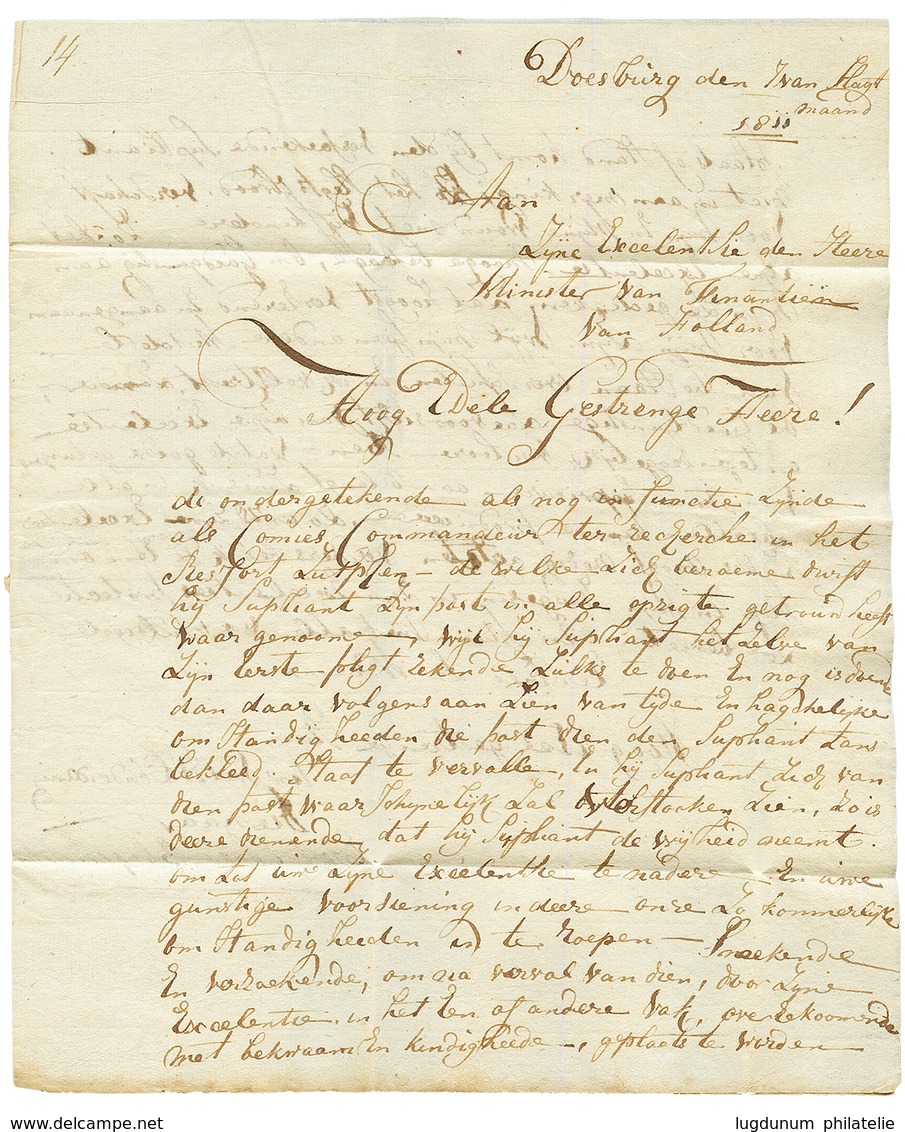 14
Doesburg den 7 van Slagt
maand
1811
Aan
Zijne Excelenthie den Heere
Minister van Finantiën
van Holland
Hoog Edele Gestrenge Heere!
de ondergetekende als nog in functie Zijnde
als Comies Commandeur ter recherche in het
Ressort Zutphen – de welke Zich beroeme durft
hij Supliant Zijn post in alle opzigte getrouw heeft
waargenoome, wijl hij Supliant het Zelve van
Zijn eerste pligt rekende Zulks te doen En nog is doende
dan daar volgens aan Zien van tijde En hagchelijke
om Standigheeden die post dien den Supliant Tans
bekleed, Staat te vervalle, En hij Supliant Zich van
dien post waar Schynelijk Zal Zien, Zo is
deeze dienende, dat hij Supliant de vrijheid neemt.
om Zal uwe Zijne Excelenthe te nadere – En uwe
gunstige voorsiening in deere onze Zo kommerlijke
om Standigheeden in te roepen – Smeekende
En verzoekende, om na verval van dien, door Zijne
Excelentie in het Een of andere vak, overeekoomende
met bekwaam En kundigheede –, geplaats te worden
delcampe.net
lugdunum philatelie